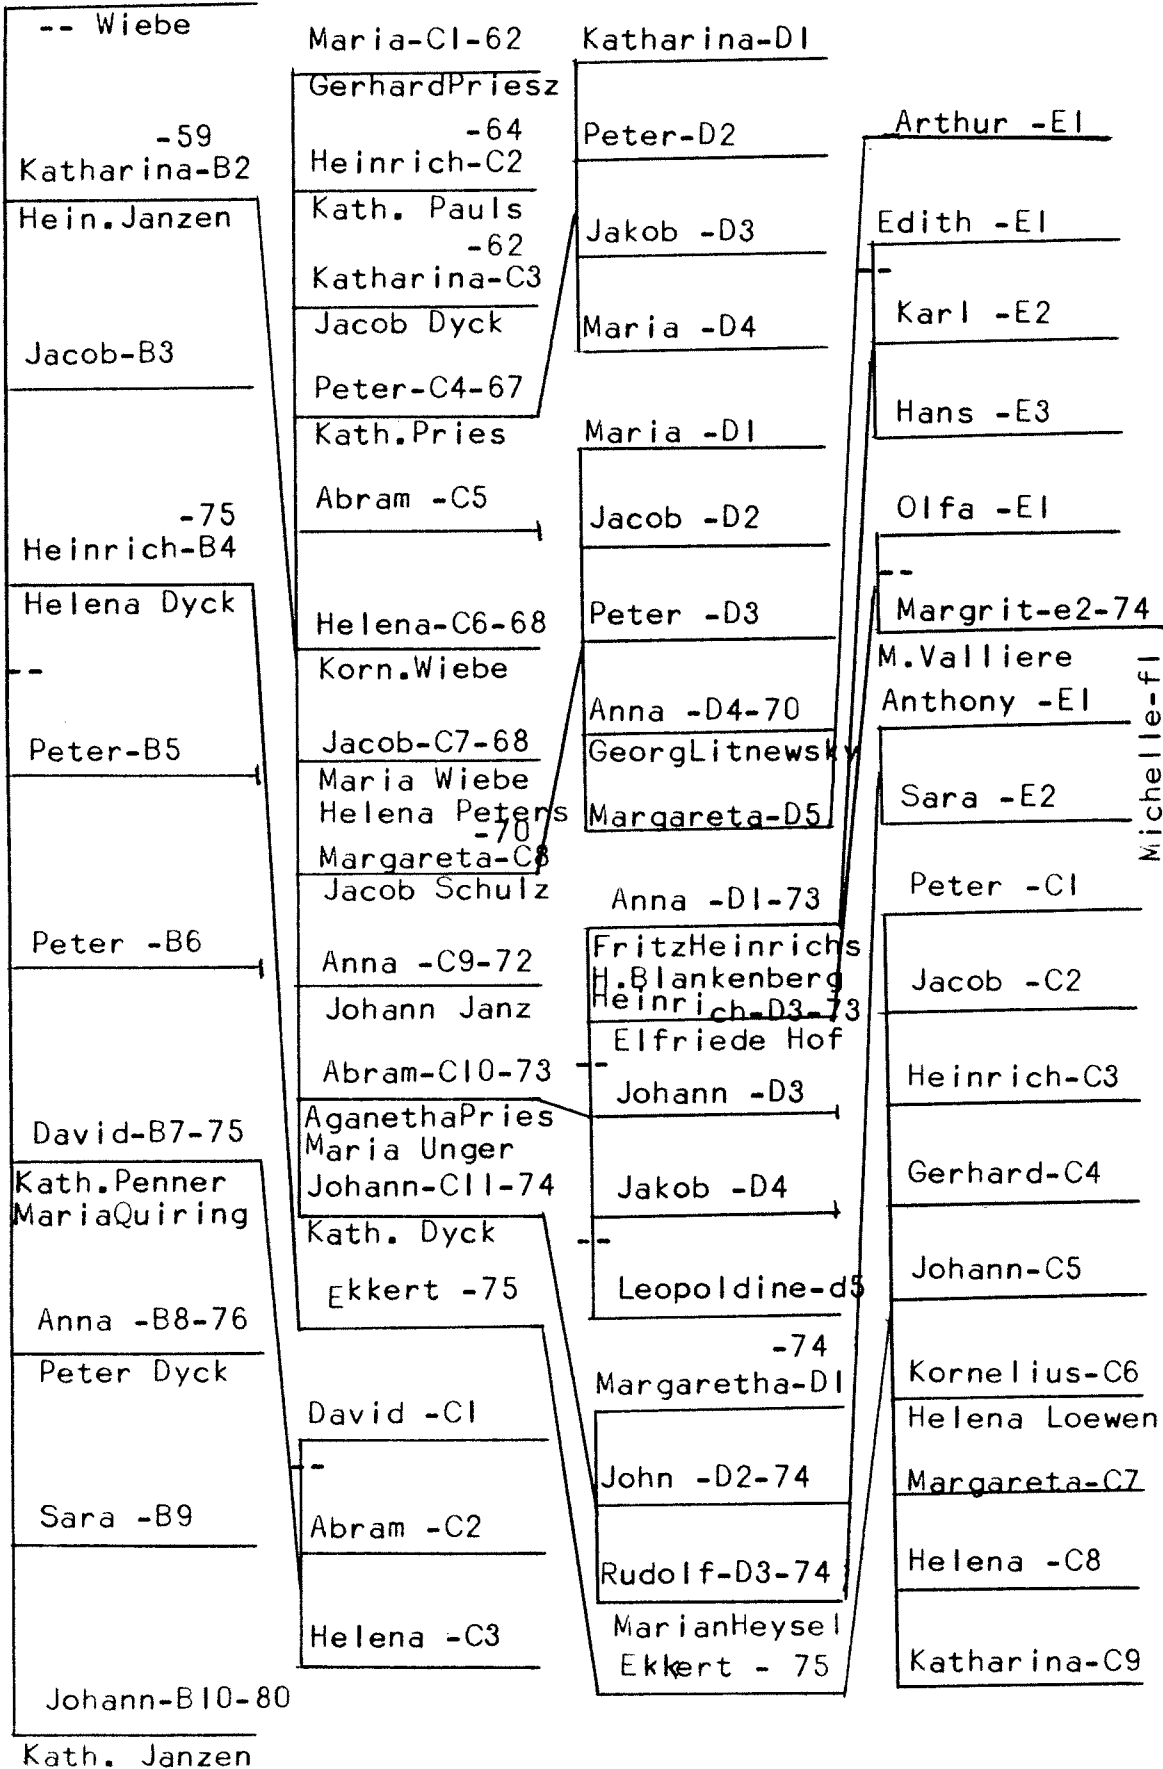 -- Wiebe
-59
Katharina-B2
Hein.Janzen
Jacob-B3
-75
Heinrich-B4
Helena Dyck
--
Peter-B5
Peter -B6
David-B7-75
Kath.Penner
MariaQuiring
Anna -B8-76
Peter Dyck
Sara -B9
Johann-B10-80
Kath. Janzen
Maria-C1-62
GerhardPriesz
-64
Heinrich-C2
Kath. Pauls
-62
Katharina-C3
Jacob Dyck
Peter-C4-67
Kath.Pries
Abram -C5
Helena-C6-68
Korn.Wiebe
Jacob-C7-68
Maria Wiebe
Helena Peters
-70
Margareta-C8
Jacob Schulz
Anna -C9-72
Johann Janz
Abram-C10-73
AganethaPries
Maria Unger
Johann-C11-74
Kath. Dyck
Ekkert -75
David -C1
--
Abram -C2
Helena -C3
Katharina-D1
Peter-D2
Jakob -D3
Maria -D4
Maria -D1
Jacob -D2
Peter -D3
Anna -D4-70
GeorgLitnewsky
Margareta-D5
Anna -D1-73
FritzHeinrichs
H.Blankenberg
Heinrich-D3-73
Elfriede Hof
--
Johann -D3
Jakob -D4
--
Leopoldine-d5
-74
Margaretha-D1
John -D2-74
Rudolf-D3-74
MarianHeysel
Ekkert - 75
Arthur -E1
Edith -E1
--
Karl -E2
Hans -E3
Olfa -E1
--
Margrit-e2-74
M.Valliere
Michelle-f1
Anthony -E1
Sara -E2
Peter -C1
Jacob -C2
Heinrich-C3
Gerhard-C4
Johann-C5
Kornelius-C6
Helena Loewen
Margareta-C7
Helena -C8
Katharina-C9